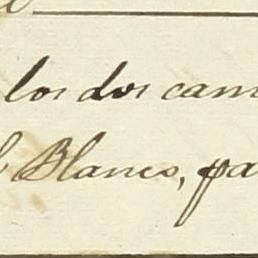 los dos cam
Blanes, pa